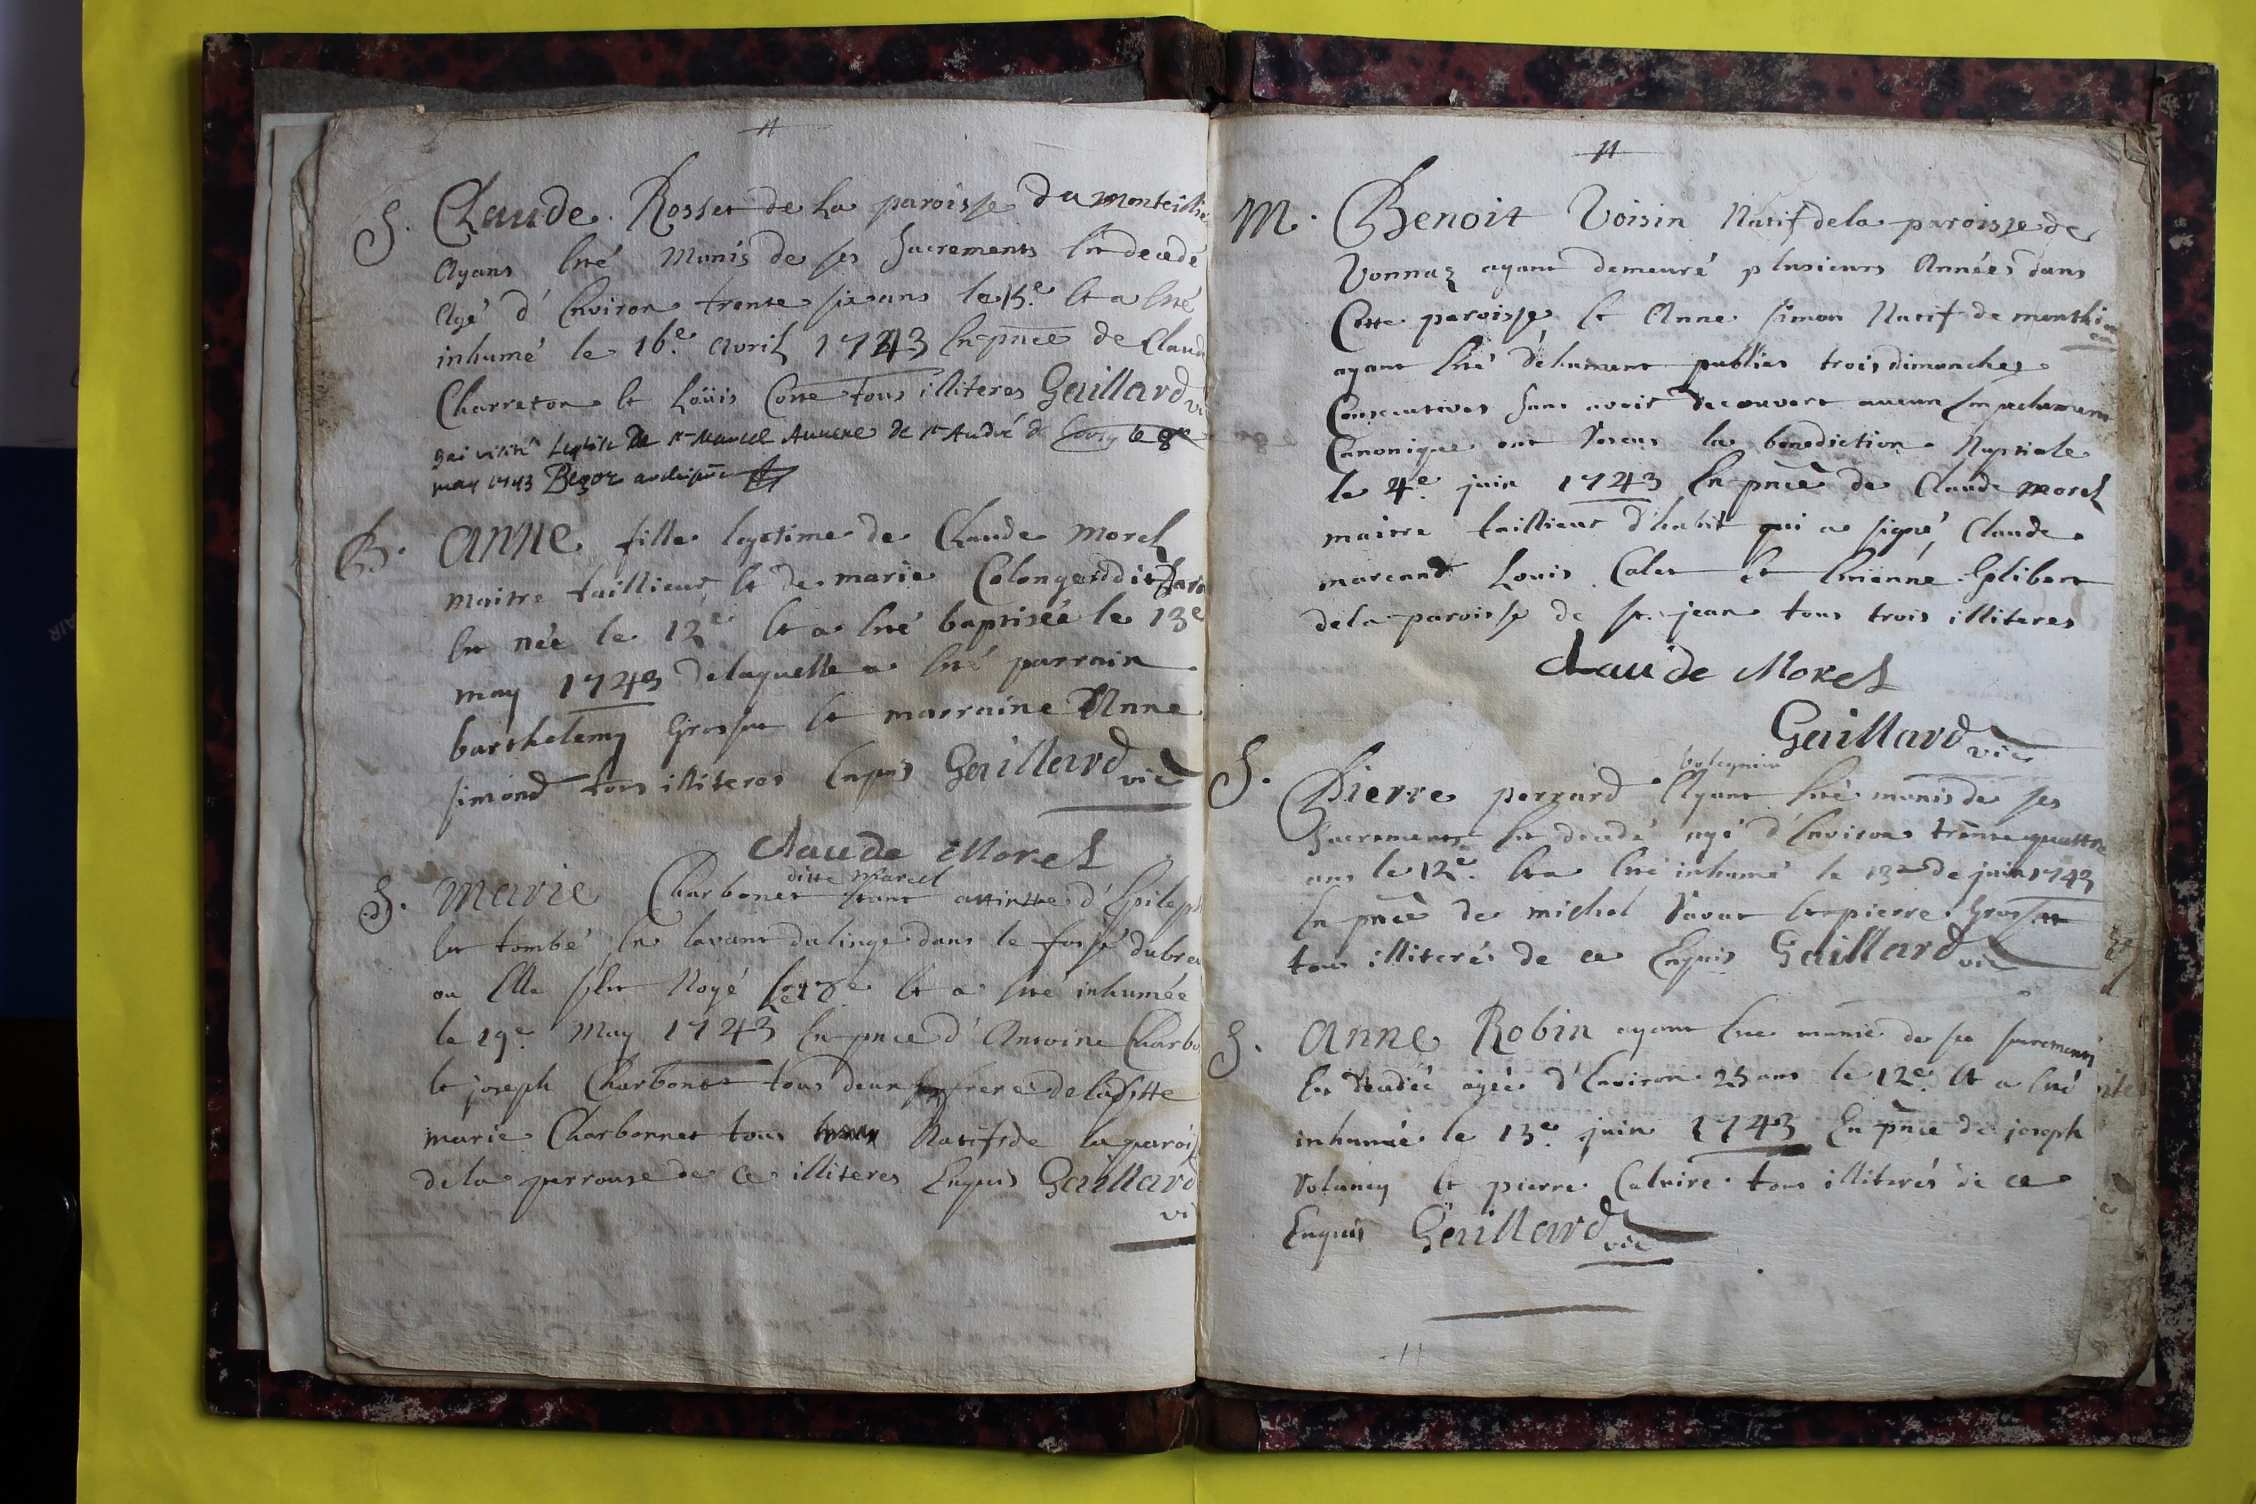 S. Claude Rosset de La paroisse Du monteillie
Ayans Eté Munis de ses Sacrements Est decedé
Agé d'Environ trente six ans le 15e. Et a Eté
inhumé le 16e. Avril 1743 En pnce de Claude
Charreton Et Loüis Coste tous illiteres Gaillard vi
may 1743
B. Anne fille legitime de Claude Morel
Maitre taillieur, Et de marie Colongeard dit
Est née le 12e Et a Eté baptisée le 13e
may 1743 de laquelle a Eté parrain
barthelemy Grosset Et marraine Anne
simond tous illiteres Enquis Gaillard vic
Claude Morel
ditte Marcel
S. Marie Charbonet Etant attintte d'Epileps
Est tombé En lavant du linge dans le fossé
ou Elle s'Est Noyé Le 18e Et a Eté inhumée
le 19e. May 1743 En pnce d'Antoine Charbo
Et joseph Charbonet tous deux frere de laditte
marie Charbonnet tous Natifs de la parois
de la perrouse de Ce illiteres Enquis Gaillard
vi
M. Benoit Voisin Natif de la paroisse de
Vonnaz ayant demeuré plusieurs Années dans
Cette paroisse, Et Anne Simon Natif de
ayant Eté dëhument publies trois dimanches
Consecutives Sans avoir decouvert aucun Empechement
Canonique ont Receus la benediction Nuptiale
le 4e. juin 1743 En pnce de Claude Morel
maitre taillieur d'habit qui a signé, Claude
marcand Louis Calet Et Etienne Glibert
de la paroisse de St. jean tous trois illiteres
Claude Morel
Gaillard vic
S. Pierre perrard Ayant Eté munis de ses
Sacrements Est decedé agé d'Environ trente quattre
ans le 12e. Et a Eté inhumé le 13e de juin 1743
En pnce de michel Savat Et pierre Grosset
tous illiterés de ce Enquis Gaillard vic
S. Anne Robin ayant Eté munie de se sacrements
Est decedée agée d'Environ 25 ans le 12e. Et a Eté
inhumée le 13e. juin 1743 En pnce de joseph
Et pierre Caluire tous illiterés de ce
Enquis Gaillard vic